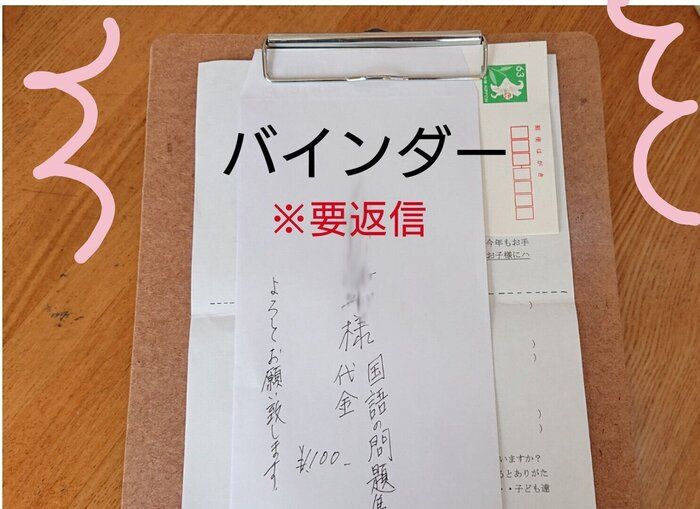 バインダー
※要返信
63
NIPPON
郵便はがき
今年もお手
お子様にハ
）
）
）
）
いますか？
るとありがた
・・子ども達
国語の問題集
様
代金
¥100-
よろしくお願い致します。